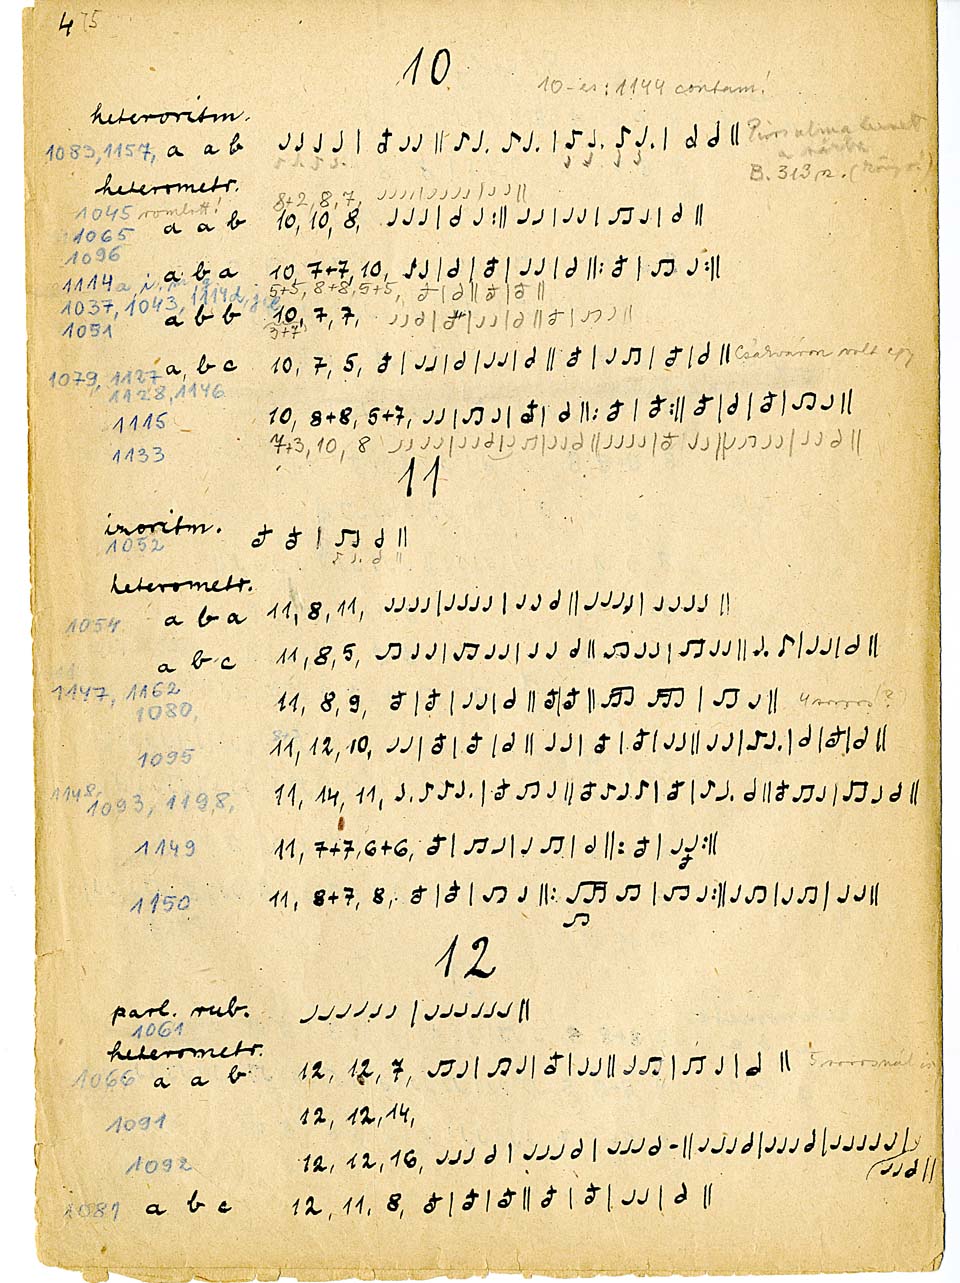 4 75
10
10-es: 1144 contam!
heteroritm.
1083, 1157, a a b
B. 313
heterometr.
1045 romlott! 8+2, 8, 7,
1065 a a b 10, 10, 8,
1096
1114 a b a 10, 7+7, 10,
5+5, 8+8, 5+5,
1037, 1043, 1114d,
1051 a b b 10, 7, 7,
3+7
1079, 1127 a, b c 10, 7, 5, Csárváron volt egy
1128, 1146
1115 10, 8+8, 5+7,
1133 7+3, 10, 8
11
izoritm.
1052
heterometr.
1054 a b a 11, 8, 11,
a b c 11, 8, 5,
1147, 1162 11, 8, 9, 4 soros (?)
1080,
1095 11, 12, 10,
1148, 1093, 1198, 11, 14, 11,
1149 11, 7+7, 6+6,
1150 11, 8+7, 8,
12
parl. rub.
1061
heterometr.
1066 a a b 12, 12, 7, 5 sorosnál is
1091 12, 12, 14,
1092 12, 12, 16,
1081 a b c 12, 11, 8,